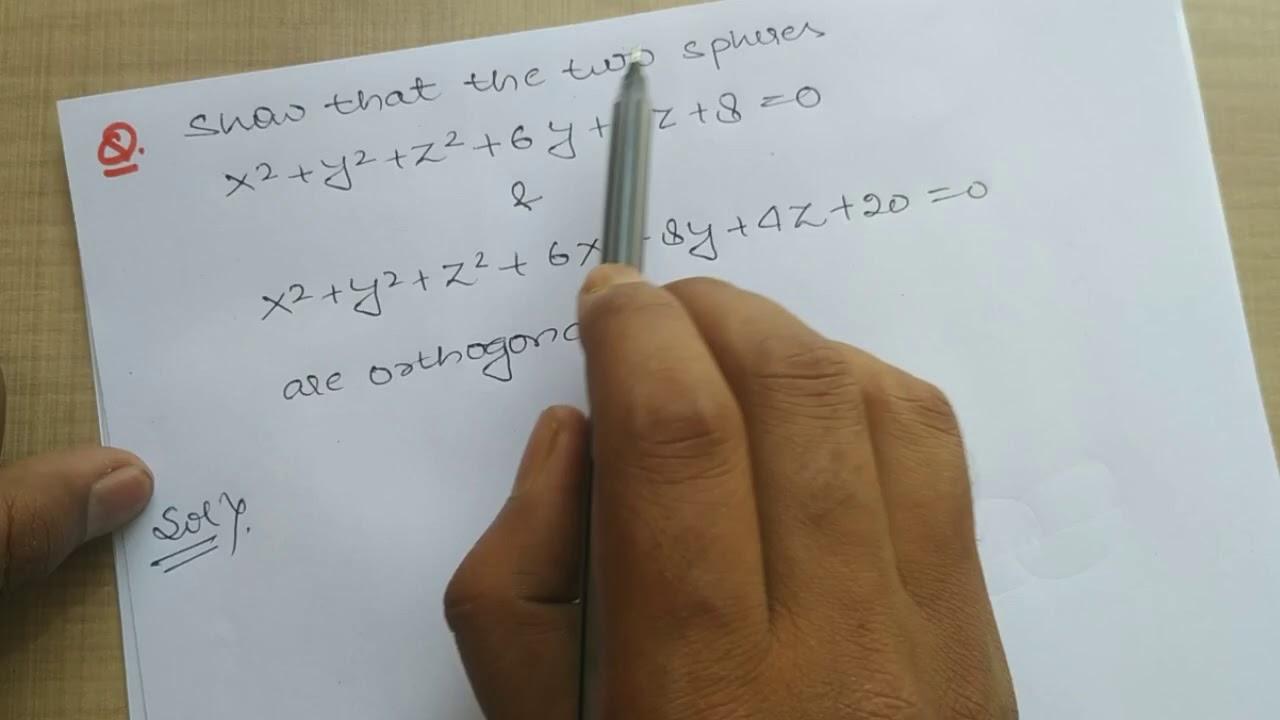 Q. Show that the two spheres
x² + y² + z² + 6y + z + 8 = 0
&
x² + y² + z² + 6x 8y + 4z + 20 = 0
are
Sol⁄.